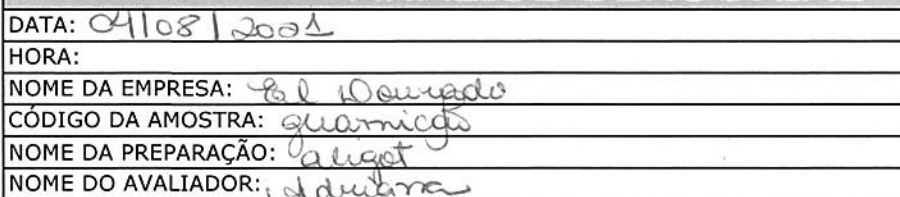 DATA: 04/08/2001
HORA:
NOME DA EMPRESA: El Dourado
CÓDIGO DA AMOSTRA: guarnicão
NOME DA PREPARAÇÃO: aligot
NOME DO AVALIADOR: Adriana